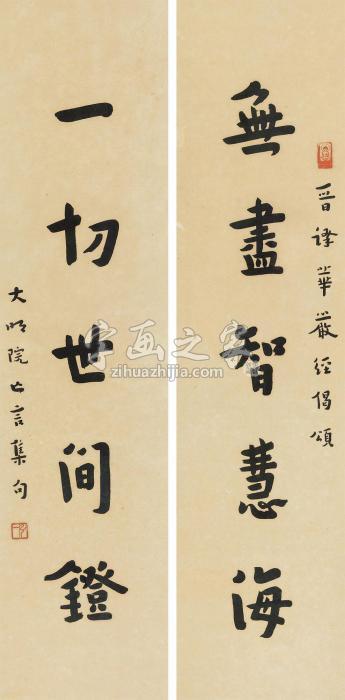 晉譯華嚴經偈頌
無盡智慧海
一切世間鐙
大明院亡言集句
字画之家
zihuazhijia.com